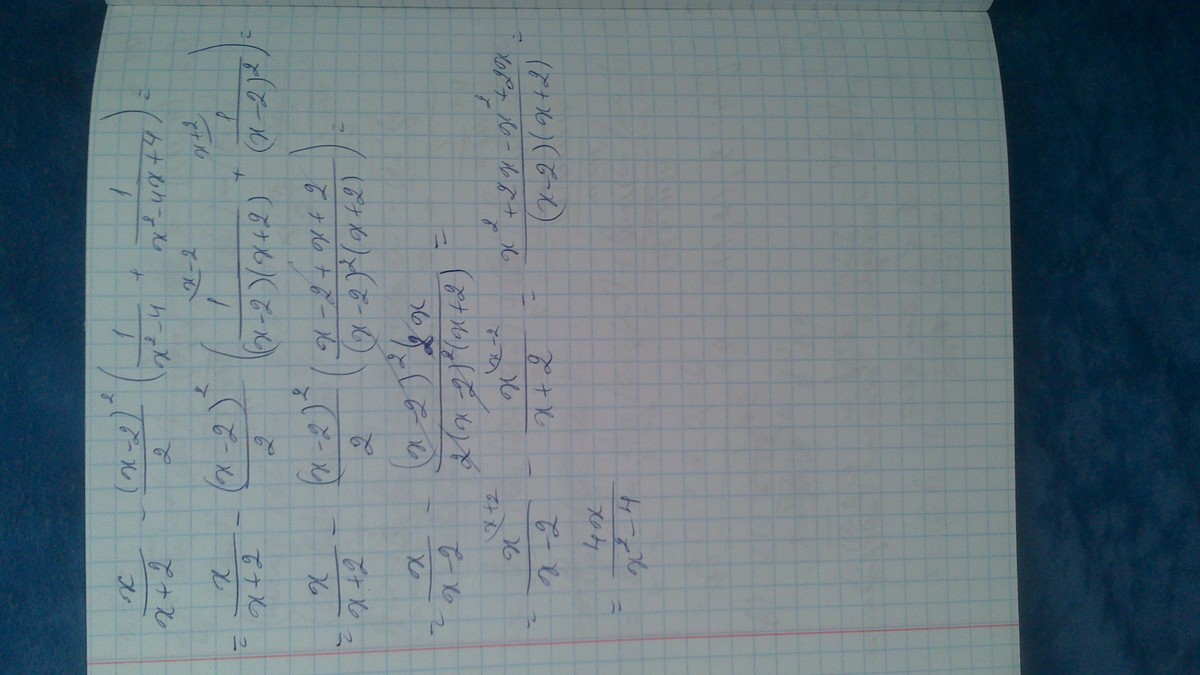 x/(x+2) - (x-2)²/2 (1/(x²-4) + 1/(x²-4x+4)) =
= x/(x+2) - (x-2)²/2 (1/((x-2)(x+2)) \x-2 + 1/(x-2)² \x+2) =
= x/(x+2) - (x-2)²/2 ((x-2+x+2)/((x-2)²(x+2))) =
= x/(x-2) - (x-2)² 2x/(2(x-2)²(x+2)) =
= x/(x-2) \x+2 - x/(x+2) \x-2 = (x²+2x-x²+2x)/((x-2)(x+2)) =
= 4x/(x²-4)